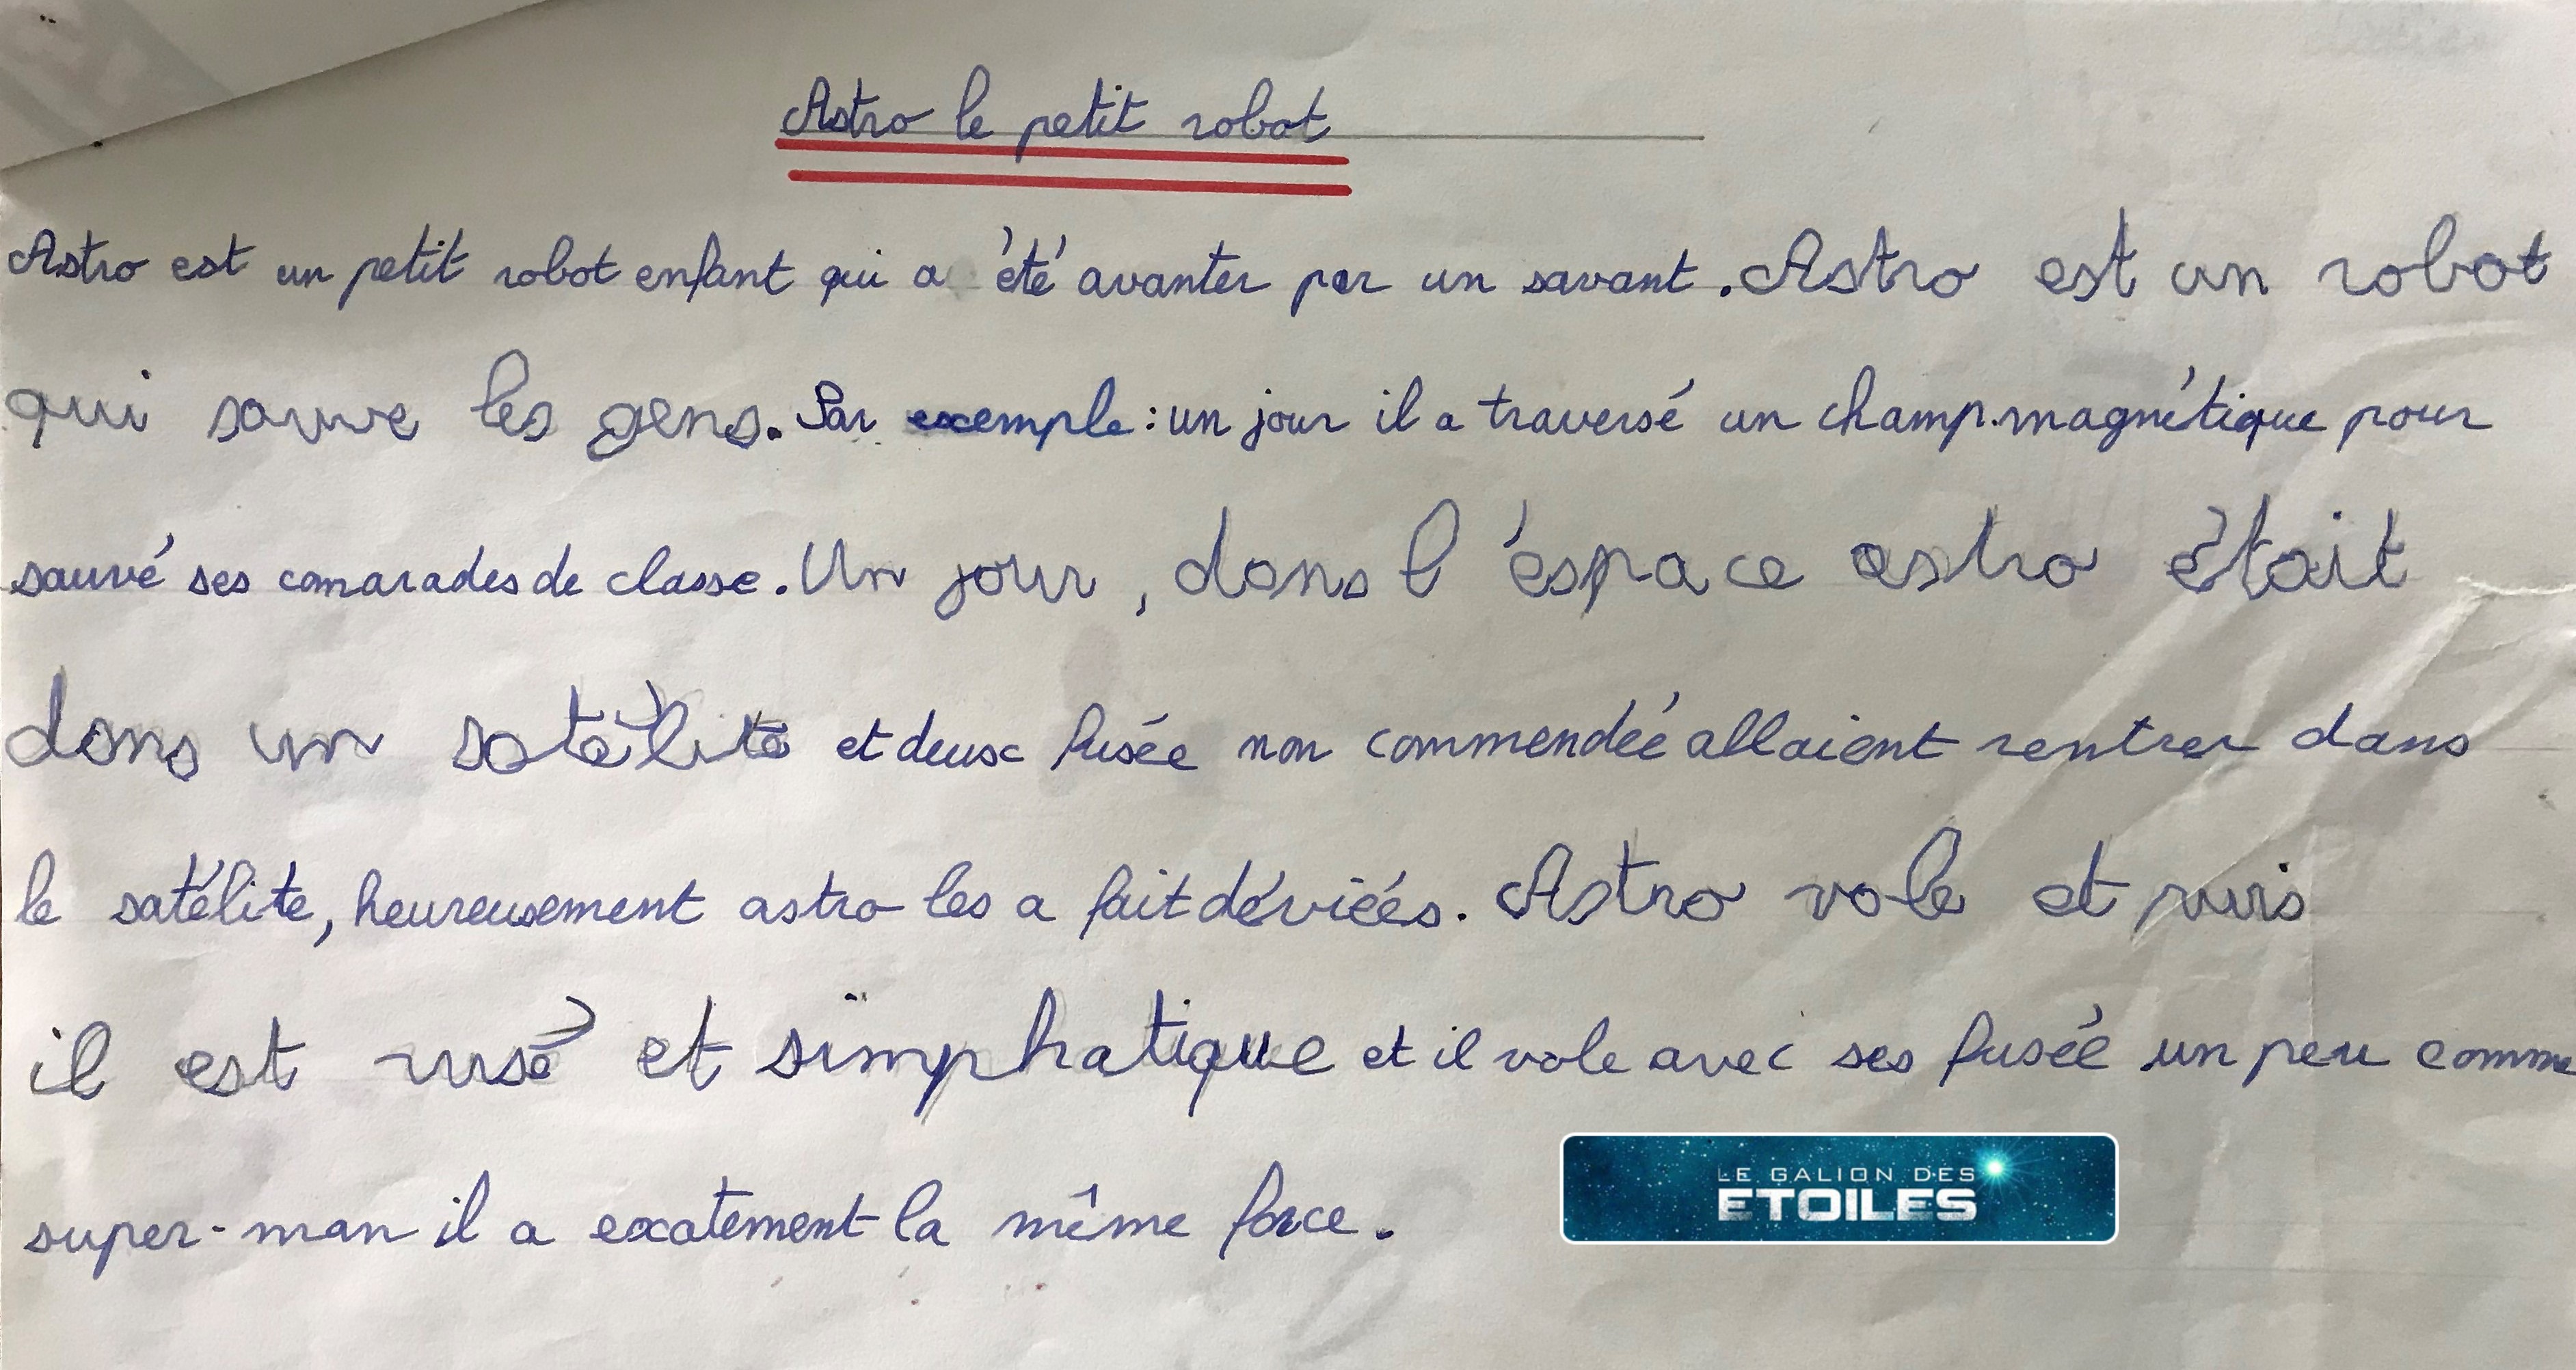 Astro le petit robot
Astro est un petit robot enfant qui a été avanter par un savant. Astro est un robot
qui sauve les gens. Par exemple : un jour il a traversé un champ.magnétique pour
sauvé ses camarades de classe. Un jour, dans l'éspace astro était
dans un satélite et deux fusée non commendéé allaient rentrer dans
le satélite, heureusement astro les a fait déviéés. Astro vole et puis
il est rusé et simphatique et il vole avec ses fuséé un peu comme
super-man il a exatement la même force.
LE GALION DES
ETOILES